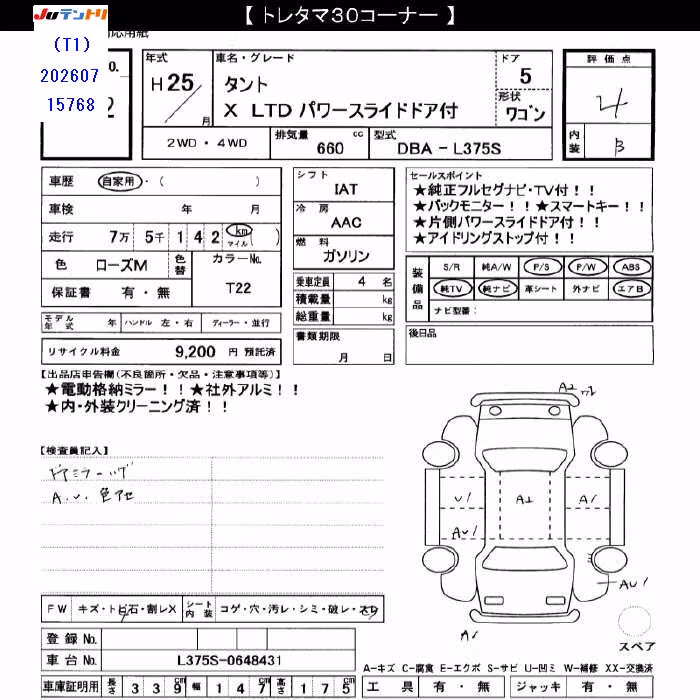 【 トレタマ30コーナー 】
JUテントリ
応用紙
(T1)
202607
15768
o.
2
年式
H 25
月
車名・グレード
タント
X LTD パワースライドドア付
ドア
5
形状
ワゴン
2WD・4WD
排気量 660 cc
型式 DBA - L375S
評価点
4
内装 B
車歴 自家用・( )
車検 年 月
走行 7万 5千 1 4 2 km マイル ( )
色 ローズM
色替
カラーNo.
T22
保証書 有・無
シフト
IAT
冷房
AAC
燃料
ガソリン
乗車定員 4 名
積載量 kg
総重量 kg
書類期限
月 日
セールスポイント
★純正フルセグナビ・TV付!!
★バックモニター!!★スマートキー!!
★片側パワースライドドア付!!
★アイドリングストップ付!!
装備品
S/R 純A/W P/S P/W ABS
純TV 純ナビ 革シート 外ナビ エアB
ナビ型番:
後日品
モデル年式 年 ハンドル 左・右 ディーラー・並行
リサイクル料金 9,200 円 預託済
【出品店申告欄(不良箇所・欠品・注意事項等)】
★電動格納ミラー!!★社外アルミ!!
★内・外装クリーニング済!!
【検査員記入】
A.U. 色アセ
A1
U1
A1
A1
AU1
AU1
A1
スペア
FW キズ・トビ石・割レX
シート内装 コゲ・穴・汚レ・シミ・破レ・スレ
登録 No.
車台 No. L375S-0648431
A-キズ C-腐食 E-エクボ S-サビ U-凹ミ W-補修 XX-交換済
車庫証明用 長さ 3 3 9 cm 幅 1 4 7 cm 高さ 1 7 5 cm
工具 有・無 ジャッキ 有・無